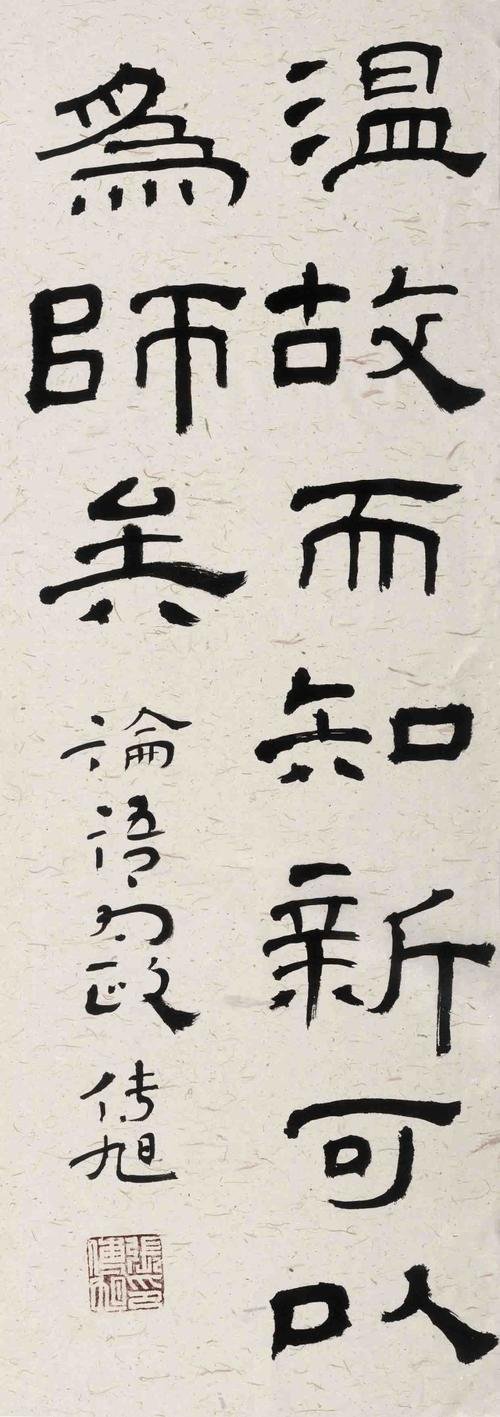 温故而知新可以
為師矣 論語為政 传旭
張傳旭印